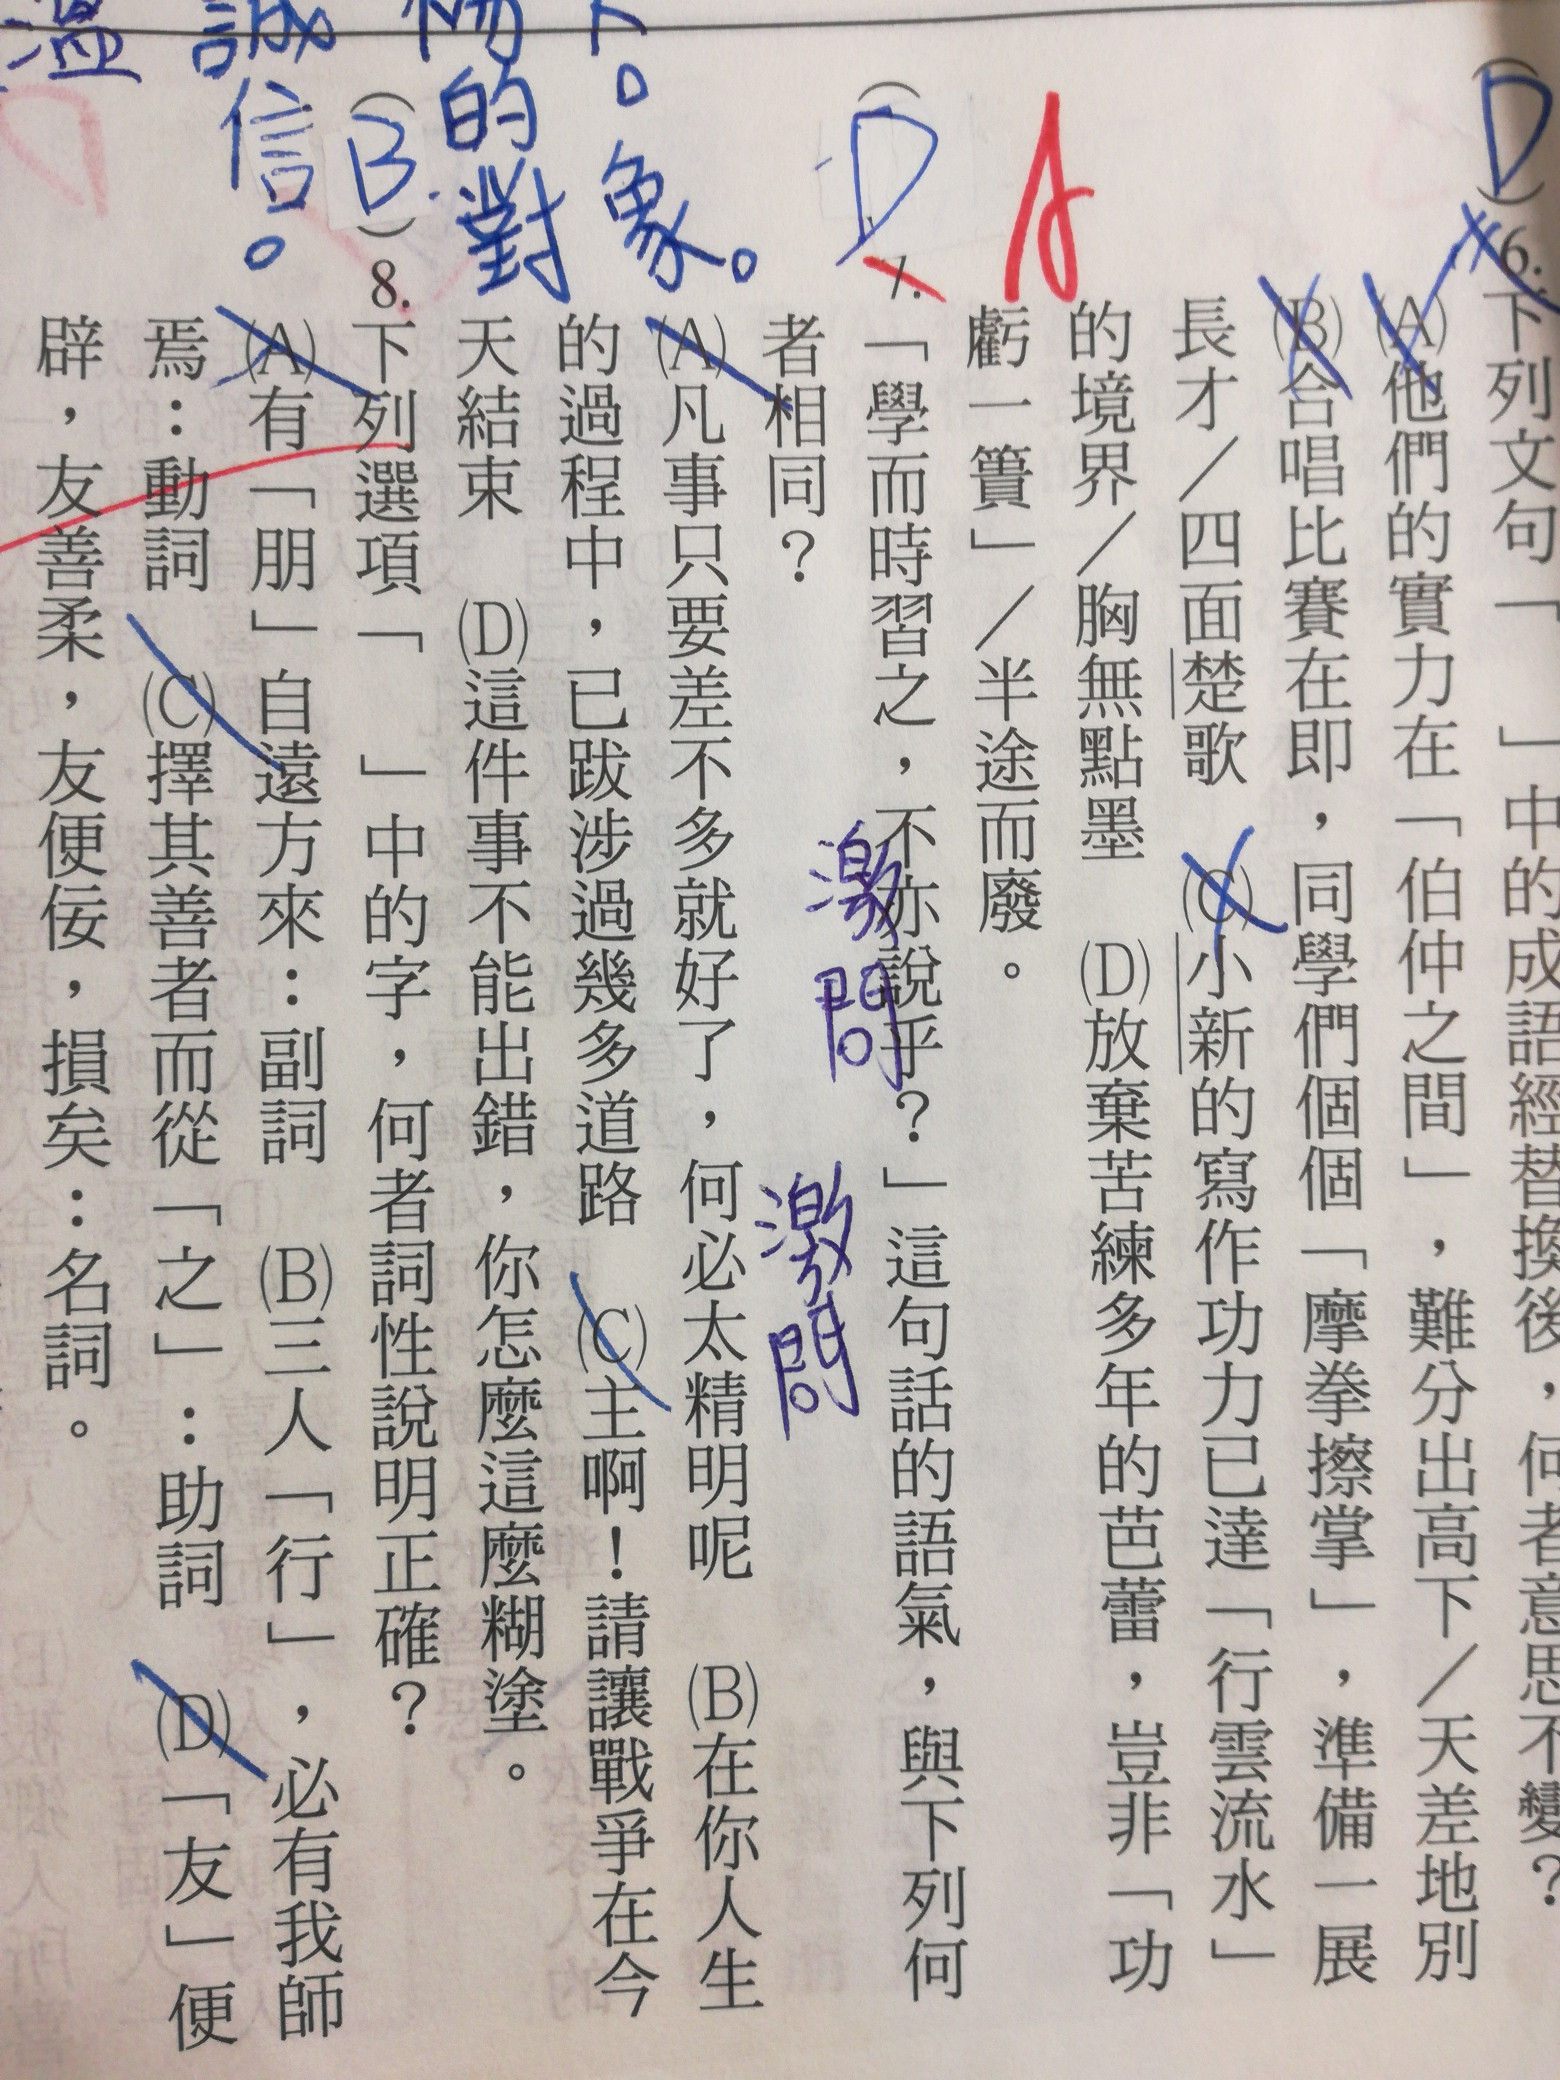 (D)6.下列文句「　」中的成語經替換後，何者意思不變？
(A)他們的實力在「伯仲之間」，難分出高下／天差地別
(B)合唱比賽在即，同學們個個「摩拳擦掌」，準備一展
長才／四面楚歌　(C)小新的寫作功力已達「行雲流水」
的境界／胸無點墨　(D)放棄苦練多年的芭蕾，豈非「功
虧一簣」／半途而廢。
A
(D)7.「學而時習之，不亦說乎？」這句話的語氣，與下列何
激問
者相同？
激問
(A)凡事只要差不多就好了，何必太精明呢　(B)在你人生
的過程中，已跋涉過幾多道路　(C)主啊！請讓戰爭在今
天結束　(D)這件事不能出錯，你怎麼這麼糊塗。
(B)8.下列選項「　」中的字，何者詞性說明正確？
(A)有「朋」自遠方來：副詞　(B)三人「行」，必有我師
焉：動詞　(C)擇其善者而從「之」：助詞　(D)「友」便
辟，友善柔，友便佞，損矣：名詞。
象。
的對
誠信。
溫